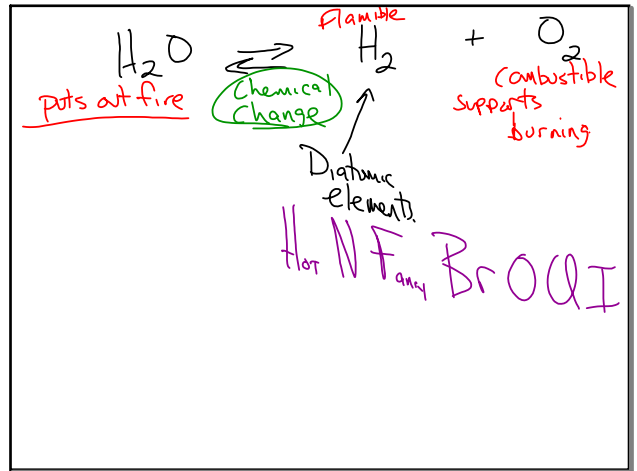 Flamible
H2O ⇌ H2 + O2
puts out fire
Chemical
Change
Combustible
supports
burning
Diatomic
elements.
Hot N Fancy Br O Cl I